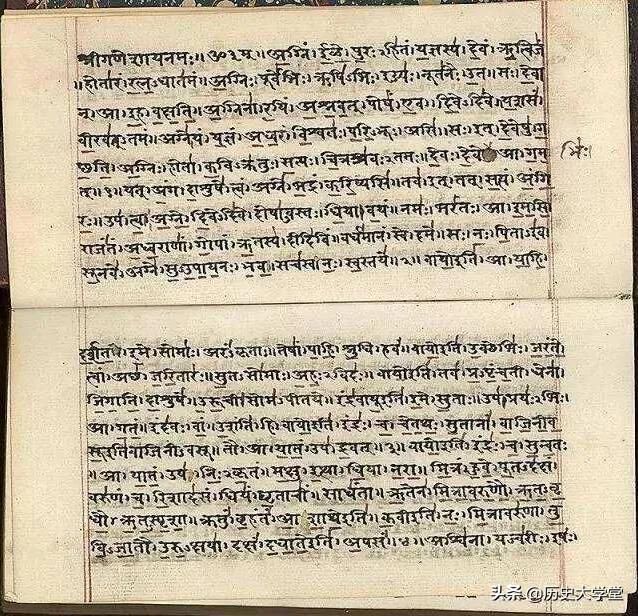 श्रीगणेशायनमः॥ॐ३म्॥अग्निं।ईळे।पुरःऽहितं।यज्ञस्य।देवं।ऋत्विजं
॥होतारं।रत्नऽधातमं॥अग्निः।पूर्वेभिः।ऋषिऽभिः।ईड्यः।नूतनैः।उत॥सः।देवा
न्।आ।इह।वक्षति॥अग्निना।रयिं।अश्नवत्।पोषं।एव।दिवेऽदिवे॥यशसं
वीरवत्ऽतमं॥अग्ने।यं।यज्ञं।अध्वरं।विश्वतः।परिऽभूः।असि॥सः।इत्।देवेषु।ग
च्छति॥अग्निः।होता।कविऽक्रतुः।सत्यः।चित्रश्रवःऽतमः॥देवः।देवे।आ।गम
भिः।
त्॥१॥यत्।अंग।दाशुषे।त्वं।अग्ने।भद्रं।करिष्यसि॥तव।इत्।तत्।सत्यं।अंगि
रः॥उप।त्वा।अग्ने।दिवेऽदिवे।दोषाऽवस्तः।धिया।वयं॥नमः।भरंतः।आ।इमसि॥
राजंतं।अध्वराणां।गोपां।ऋतस्य।दीदिविं॥वर्धमानं।स्वे।दमे॥सः।नः।पिताऽइव।
सूनवे।अग्ने।सुऽउपायनः।भव॥सचस्व।नः।स्वस्तये॥२॥वायोइति।आ।याहि।
दर्शत।इमे।सोमाः।अरंऽकृताः॥तेषां।पाहि।श्रुधि।हवं॥वायोइति।उक्थेभिः।जरंते
त्वां।अच्छ।जरितारः॥सुतऽसोमाः।अहःऽविदः॥वायोइति।तव।प्रऽपृंचती।धेना।
जिगाति।दाशुषे॥उरूची।सोमऽपीतये॥इंद्रवायूइति।इमे।सुताः॥उप।प्रयःऽभिः।
आ।गतं॥इंदवः।वां।उशंति।हि॥वायोइति।इंद्रः।च।चेतथः।सुतानां।वाजिनीव
सूइतिवाजिनीऽवसू॥तौ।आ।यातं।उप।द्रवत्॥३॥वायोइति।इंद्रः।च।सुन्वतः
॥आ।यातं।उप।निःऽकृतं॥मक्षु।इत्था।धिया।नरा॥मित्रं।हुवे।पूतऽदक्षं।
वरुणं।च।रिशादसं॥धियं।घृताचीं॥साधंता॥ऋतेन।मित्रावरुणौ।ऋतऽवृ
धौ।ऋतऽस्पृशा॥क्रतुं।बृहंतं।आशाथेइति॥कवीइति।नः।मित्रावरुणा।तु
विऽजातौ।उरुऽक्षया॥दक्षं।दधातेइति।अपसं॥४॥अश्विना।यज्वरीः।इषः।
头条 @历史大学堂